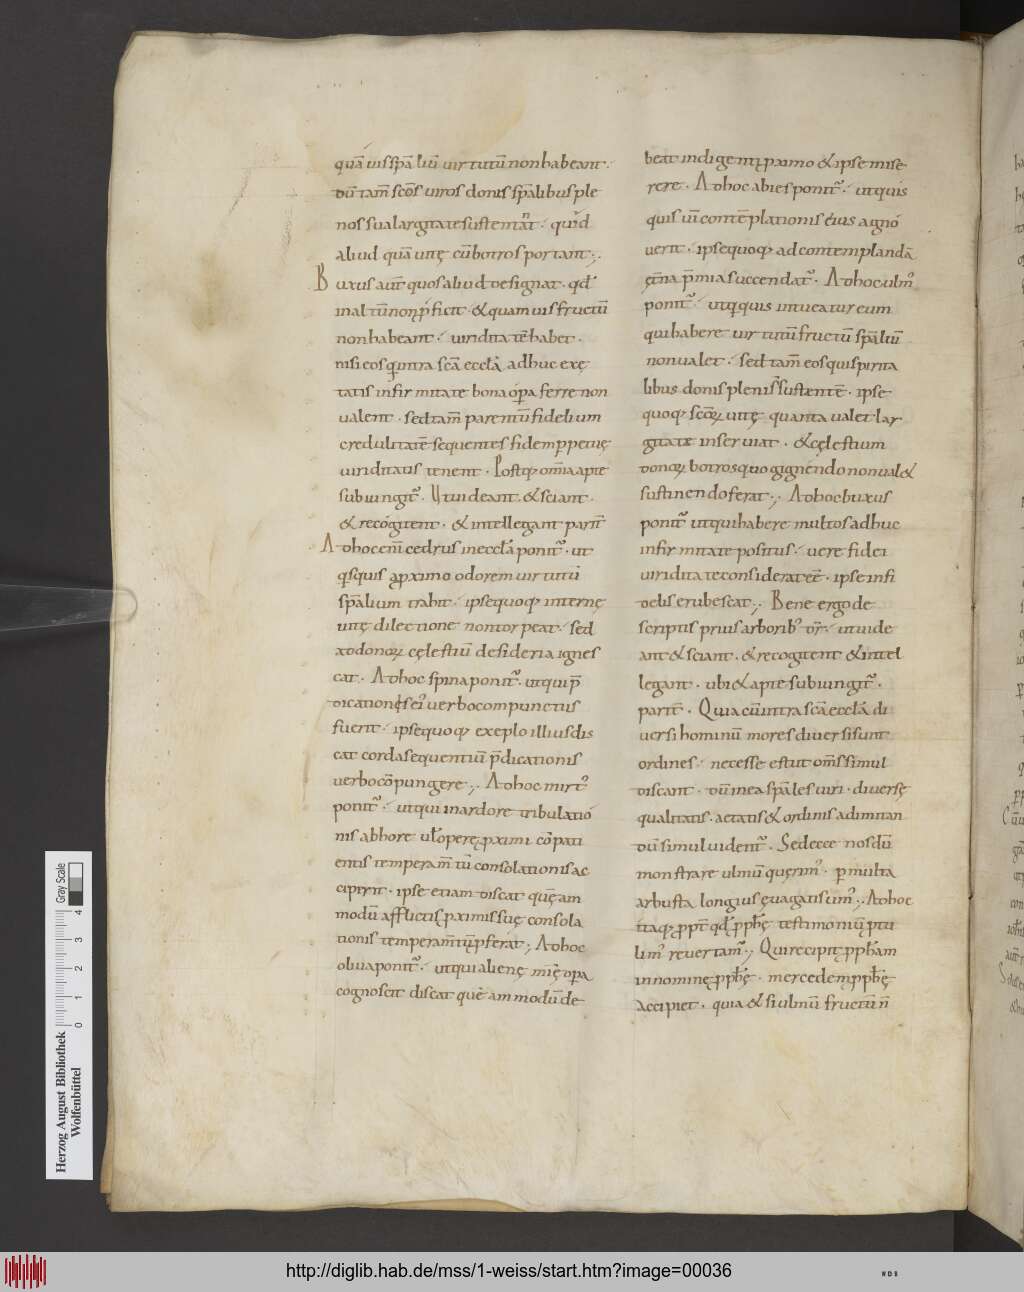 quā uis spālium uirtutū non habeant.
dū tam̄ scōs uiros donis spālibus ple
nos sua largitate sustentāt. quid
aliud quā uitę cū botros portant;.
Buxus aut̄ quos aliud designat. qđ
in altū non proficit. & quamuis fructū
non habeant. uiriditatē habet.
nisi eos qui intra scā ecclā adhuc exę
tatis infirmitate bona opera ferre non
ualent. sed tam̄ parentū fidelium
credulitatē sequentes fidem perpetuę
uiriditatis tenent. Post quę omnia apte
subiungit̄. Ut uideant. & sciant.
& recogitent. & intellegant parit̄
Ad hoc enī cedrus in ecclā ponit̄. ut
quisquis a proximo odorem uirtutū
spālium trahit. ipse quoq; internę
uitę dilectione non torpeat. sed
ad odorem cęlestiū desideria ignes
cat. Ad hoc spina ponit̄. ut qui p̄
dicationis ei; uerbo compunctus
fuerit. ipse quoq; exēplo illius dis
cat corda sequentiū p̄dicationis
uerbo cōpungere;. Ad hoc mirt;
ponit̄. ut qui in ardore tribulatio
nis ab hore uł opere proximi cōpati
entis temperam̄tū consolationis ac
ciperit. ipse etiam discat quēam
modū afflictis proximis suę consola
tionis temperam̄tū proferat;. Ad hoc
oliua ponit̄. ut qui alienę mię opa
cognoscit discat quēammodū de
beat indigenti proximo & ipse mise
rere. Ad hoc abies ponit̄. ut quis
quis uī contēplationis eius agno
uerit. ipse quoq; ad contemplandā
ęt̄na p̄mia succendat̄. Ad hoc ulm;
ponit̄. ut quisquis intueatur eum
qui habere uirtutū fructū spālium
non ualet. sed tam̄ eos qui spirita
libus donis plenis sustentē. ipse
quoq; scōrum uitę quanta ualet lar
gitate inseruiat. & cęlestium
donorum botros quo gignendo non ual&
sustinendo ferat;. Ad hoc buxus
ponit̄ ut qui habere multos adhuc
infirmitate positus. uere fidei
uiriditate considerat eē. ipse infi
delis erubescat;. Bene ergo de
scriptis prius arborib; dr̄. ut uide
ant & sciant. & recogitent & intel
legant. ubi & apte subiungit̄.
parit̄. Quia cū intra scā ecclā di
uersi hominū mores diuersi sunt
ordines. necesse est ut om̄s simul
discant. dū in ea spāles uiri. diuersę
qualitatis. aetatis & ordinis ad imitan
dū simul uident̄. Sed ecce nos dū
monstrare ulmū querim;. per multa
arbusta longius euagati sum;. Ad hoc
itaq; propt̄ qđ prophę testimoniū protu
lim; reuertam̄;. Qui recipit propham
in nomine prophę. mercedem prophę
accipiet. quia & si ulmū fructū n̄
http://diglib.hab.de/mss/1-weiss/start.htm?image=00036
Herzog August Bibliothek
Wolfenbüttel
Gray Scale
0 1 2 3 4